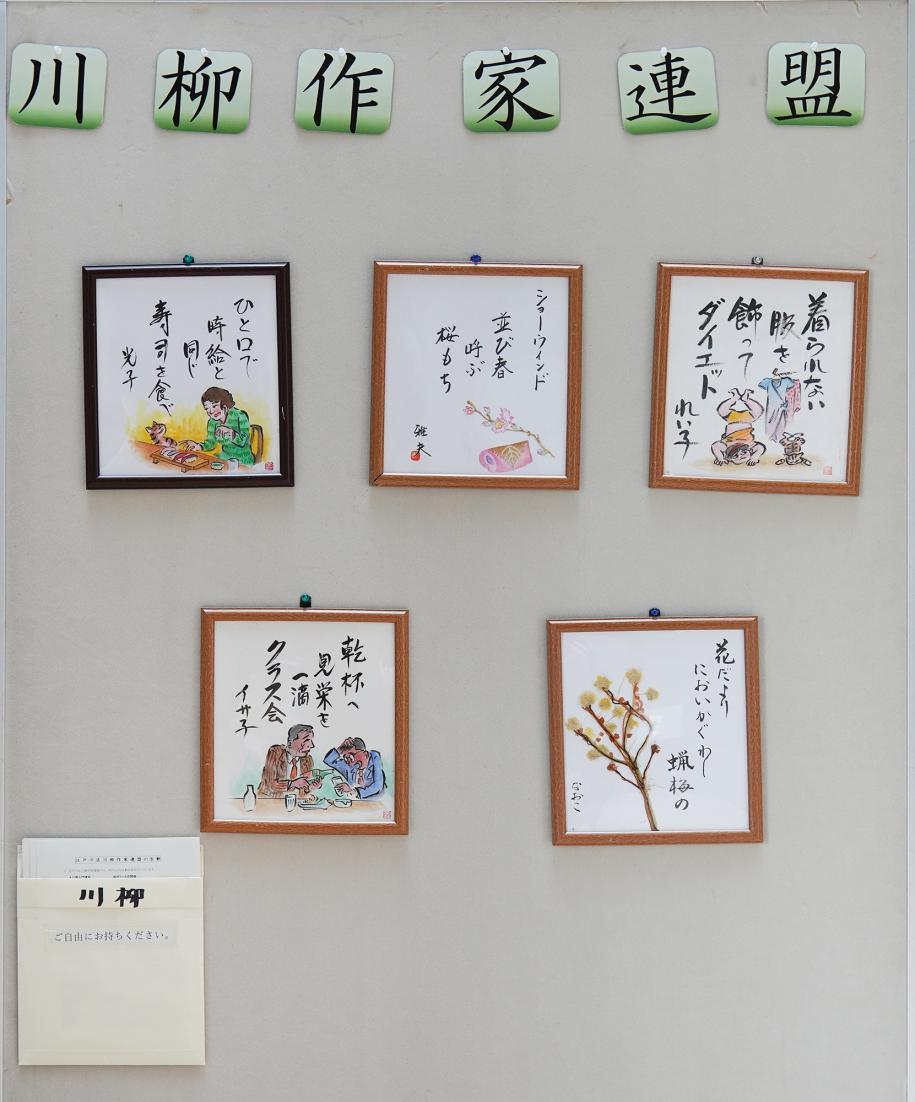 川柳作家連盟
ひと口で
時給と
同じ
寿司を食べ
光子
ショーウィンド
並び春
呼ぶ
桜もち
雅夫
着られない
服を
飾って
ダイエット
れい子
乾杯へ
見栄を
一滴
クラス会
イサ子
花だより
においかぐわし
蝋梅の
なおこ
川柳
ご自由にお持ちください。